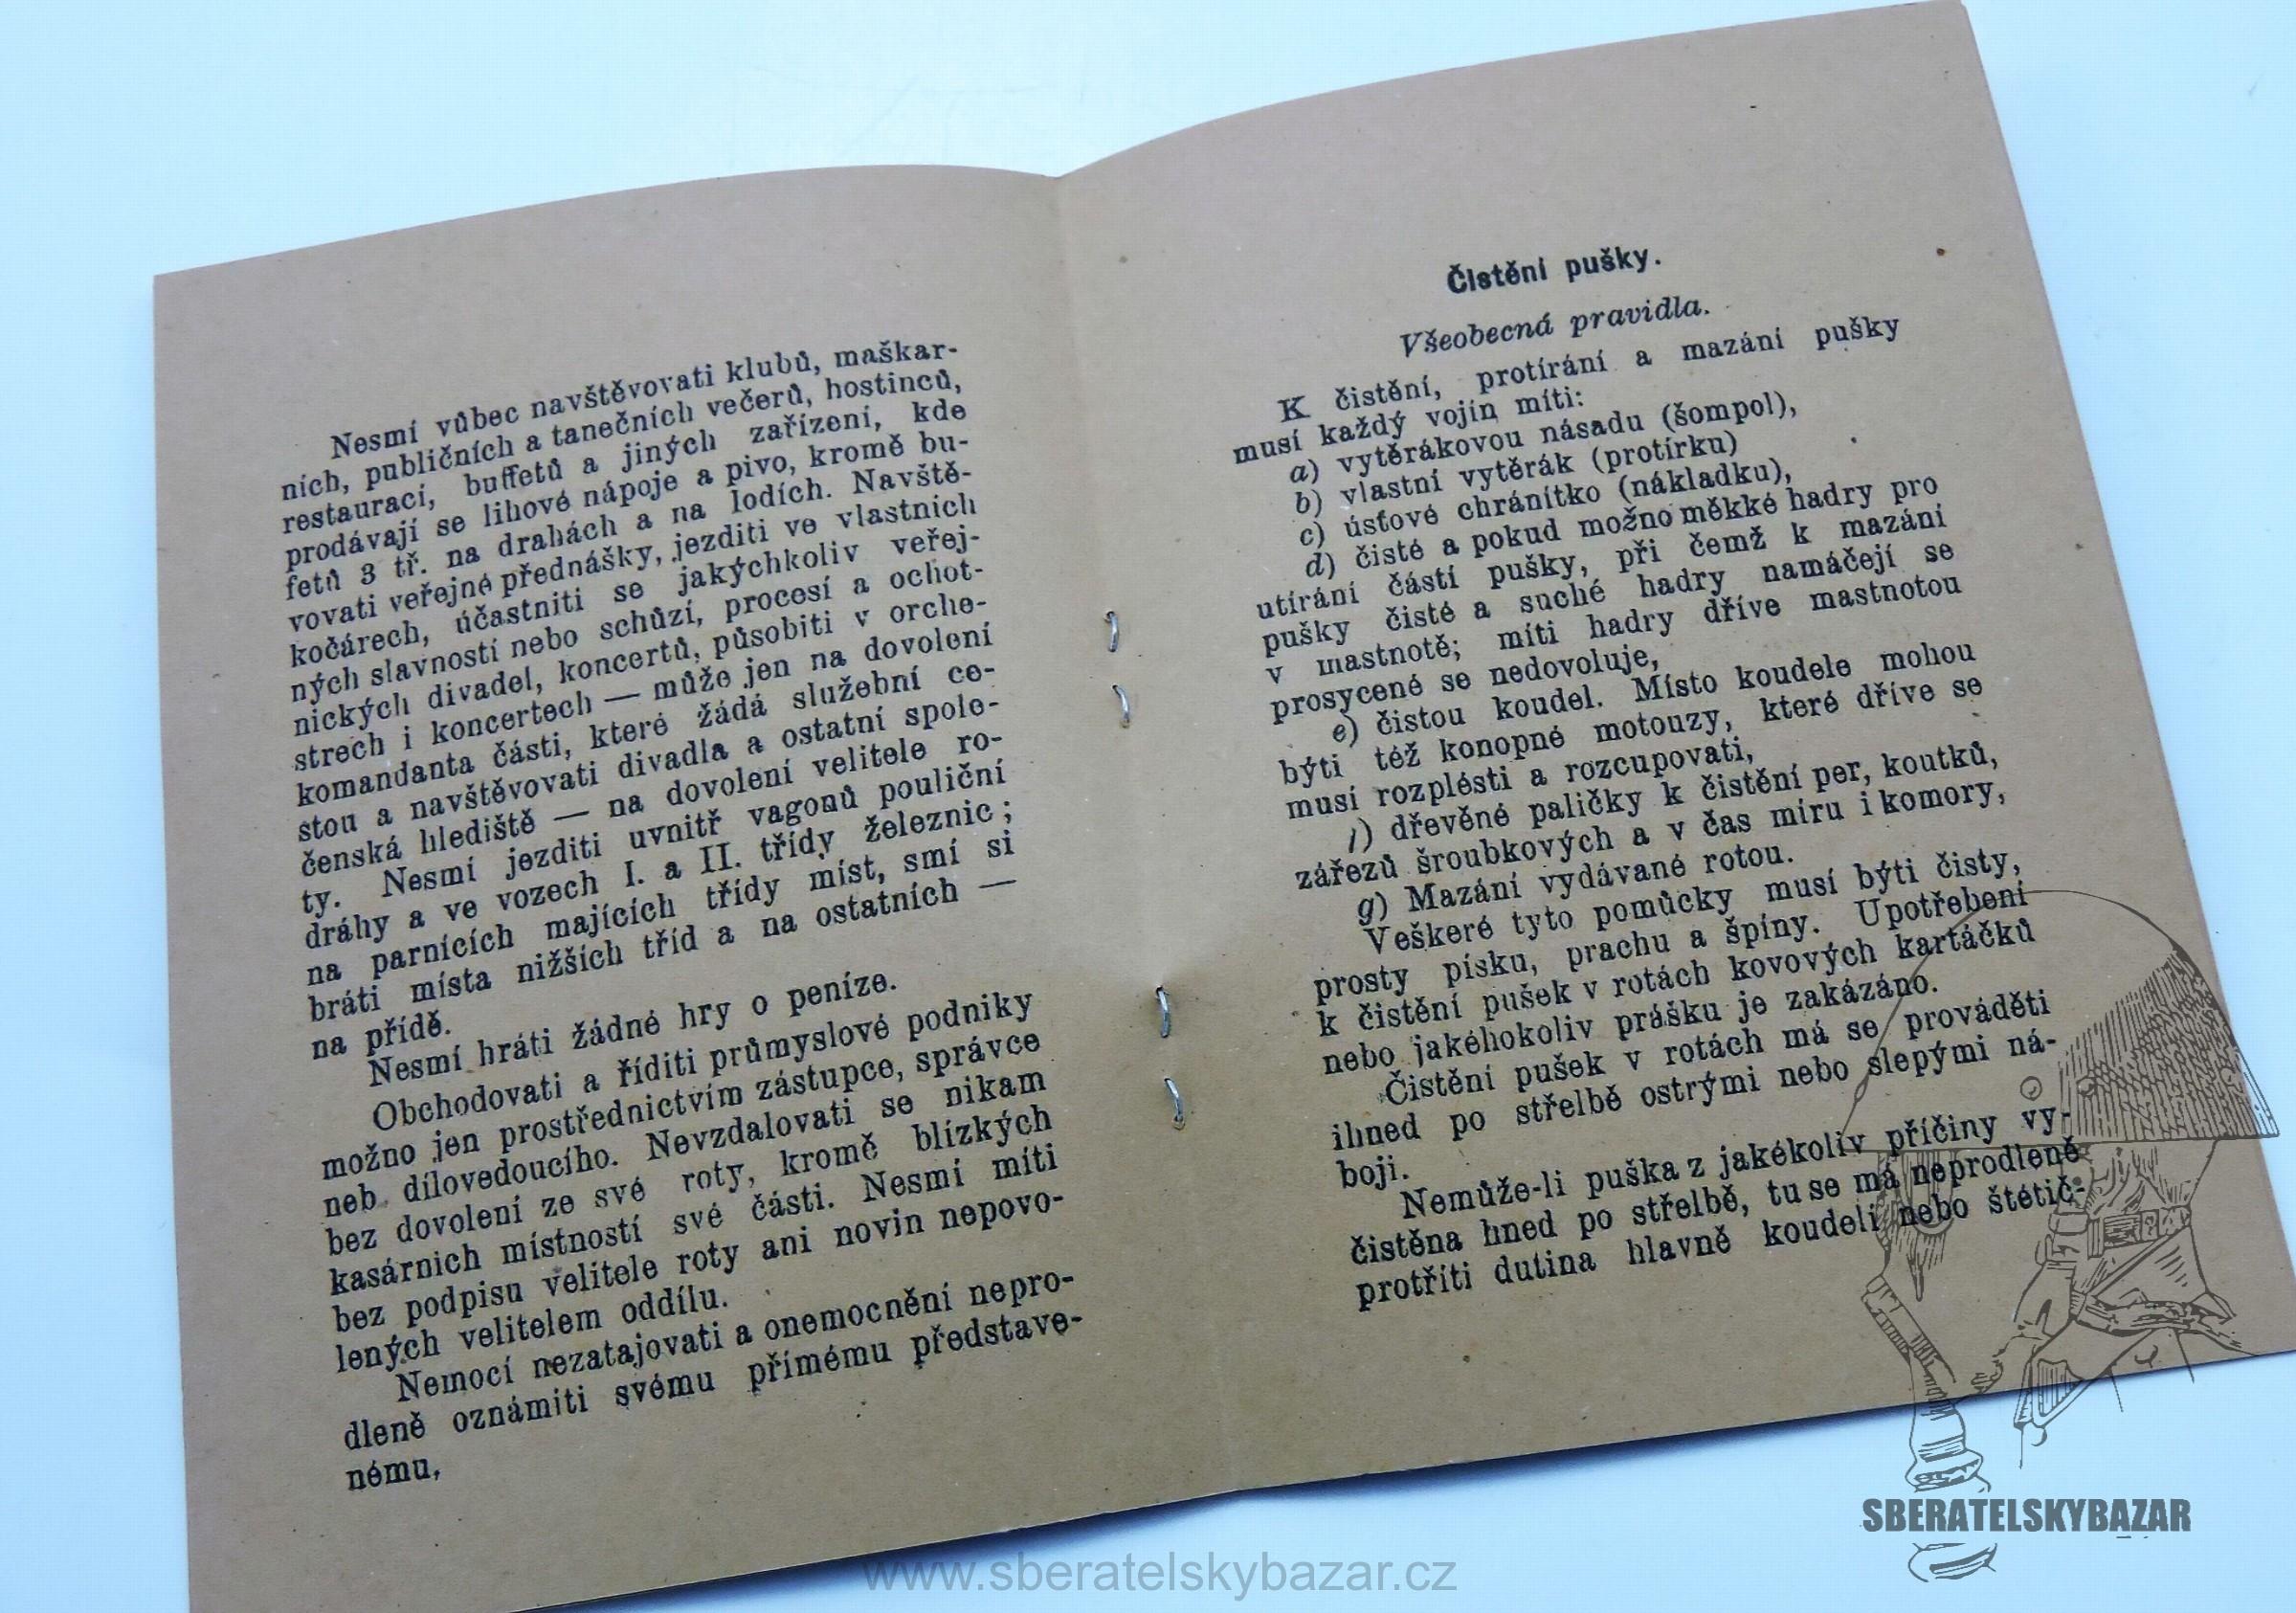 Nesmí vůbec navštěvovati klubů, maškar-
ních, publičních a tanečních večerů, hostinců,
restaurací, buffetů a jiných zařízení, kde
prodávají se lihové nápoje a pivo, kromě bu-
fetů 3 tř. na drahách a na lodích. Navště-
vovati veřejné přednášky, jezditi ve vlastních
kočárech, účastniti se jakýchkoliv veřej-
ných slavností nebo schůzí, procesí a ochot-
nických divadel, koncertů, působiti v orche-
strech i koncertech — může jen na dovolení
komandanta části, které žádá služební ce-
stou a navštěvovati divadla a ostatní spole-
čenská hlediště — na dovolení velitele ro-
ty. Nesmí jezditi uvnitř vagonů pouliční
dráhy a ve vozech I. a II. třídy železnic;
na parnících majících třídy míst, smí si
bráti místa nižších tříd a na ostatních —
na přídě.
Nesmí hráti žádné hry o peníze.
Obchodovati a říditi průmyslové podniky
možno jen prostřednictvím zástupce, správce
neb dílovedoucího. Nevzdalovati se nikam
bez dovolení ze své roty, kromě blízkých
kasárnich místností své části. Nesmí míti
bez podpisu velitele roty ani novin nepovo-
lených velitelem oddílu.
Nemocí nezatajovati a onemocnění nepro-
dleně oznámiti svému přímému představe-
nému,
Čistění pušky.
Všeobecná pravidla.
K čistění, protírání a mazání pušky
musí každý vojín míti:
a) vytěrákovou násadu (šompol),
b) vlastní vytěrák (protírku)
c) úsťové chránítko (nákladku),
d) čisté a pokud možno měkké hadry pro
utírání částí pušky, při čemž k mazání
pušky čisté a suché hadry namáčejí se
v mastnotě; míti hadry dříve mastnotou
prosycené se nedovoluje,
e) čistou koudel. Místo koudele mohou
býti též konopné motouzy, které dříve se
musí rozplésti a rozcupovati,
f) dřevěné paličky k čistění per, koutků,
zářezů šroubkových a v čas míru i komory,
g) Mazání vydávané rotou.
Veškeré tyto pomůcky musí býti čisty,
prosty písku, prachu a špíny. Upotřebení
k čistění pušek v rotách kovových kartáčků
nebo jakéhokoliv prášku je zakázáno.
Čistění pušek v rotách má se prováděti
ihned po střelbě ostrými nebo slepými ná-
boji.
Nemůže-li puška z jakékoliv příčiny vy-
čistěna hned po střelbě, tu se má neprodleně
protříti dutina hlavně koudelí nebo štětič-
SBERATELSKYBAZAR
www.sberatelskybazar.cz